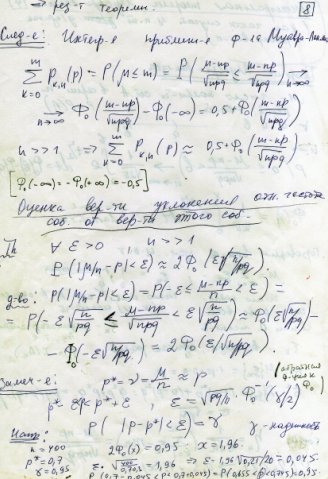 → рез-т теоремы.
8
След-е: Интегр-я приближ-е ф-ла Муавра-
∑_{k=0}^{m} P_{k,n}(p) = P(μ≤m) = P((μ-np)/√npq ≤ (m-np)/√npq) → n→∞
→ n→∞ Φ₀((m-np)/√npq) - Φ₀(-∞) = 0,5+Φ₀((m-np)/√npq)
n>>1 ⇒ ∑_{k=0}^{m} P_{k,n}(p) ≈ 0,5+Φ₀((m-np)/√npq)
[Φ₀(-∞) = -Φ₀(+∞) = -0,5]
Оценка вер-ти уклонения отн. частоты
соб. от вер-ти этого соб.
∀ ε>0 n>>1
P(|μ/n - p|<ε) ≈ 2Φ₀(ε√(n/pq)).
д-во: P(|μ/n - p|<ε) = P(-ε ≤ (μ-np)/n < ε) =
= P(-ε√(n/pq) ≤ (μ-np)/√npq < ε√(n/pq)) ≈ Φ₀(ε√(n/pq)) -
- Φ₀(-ε√(n/pq)) = 2Φ₀(ε√(n/pq))
Замеч-е: p* = ν = μ/n ≈ p (обратная ф-ция к Φ₀)
p*-ε<p<p*+ε, ε = √(pq/n) · Φ₀⁻¹(γ/2)
P(|p-p*|<ε) = γ γ-надежность
Напр: 2Φ₀(x) = 0,95 x = 1,96
n = 400
p* = 0,7
γ = 0,95 ⇒ ε = 1,96 √0,21/20 = 0,045
P(0,7-0,045<p<0,7+0,045) = P(0,655<p<0,745) = 0,95